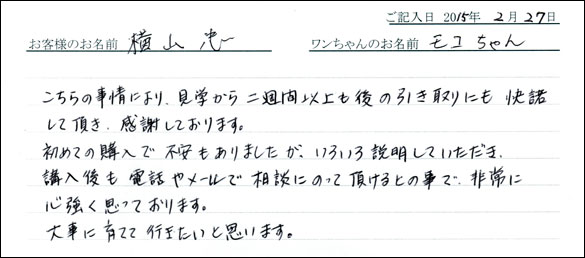 ご記入日 2015年 2月 27日
お客様のお名前 横山 忠一 ワンちゃんのお名前 モコちゃん
こちらの事情により、見学から二週間以上も後の引き取りにも快諾
して頂き、感謝しております。
初めての購入で不安もありましたが、いろいろ説明していただき、
購入後も電話やメールで相談にのって頂けるとの事で、非常に
心強く思っております。
大事に育てて行きたいと思います。